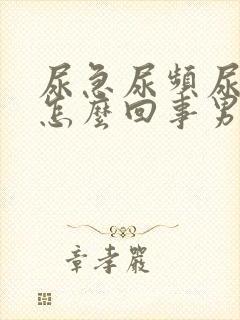 尿急尿頻尿
怎麼回事男
章孝嚴